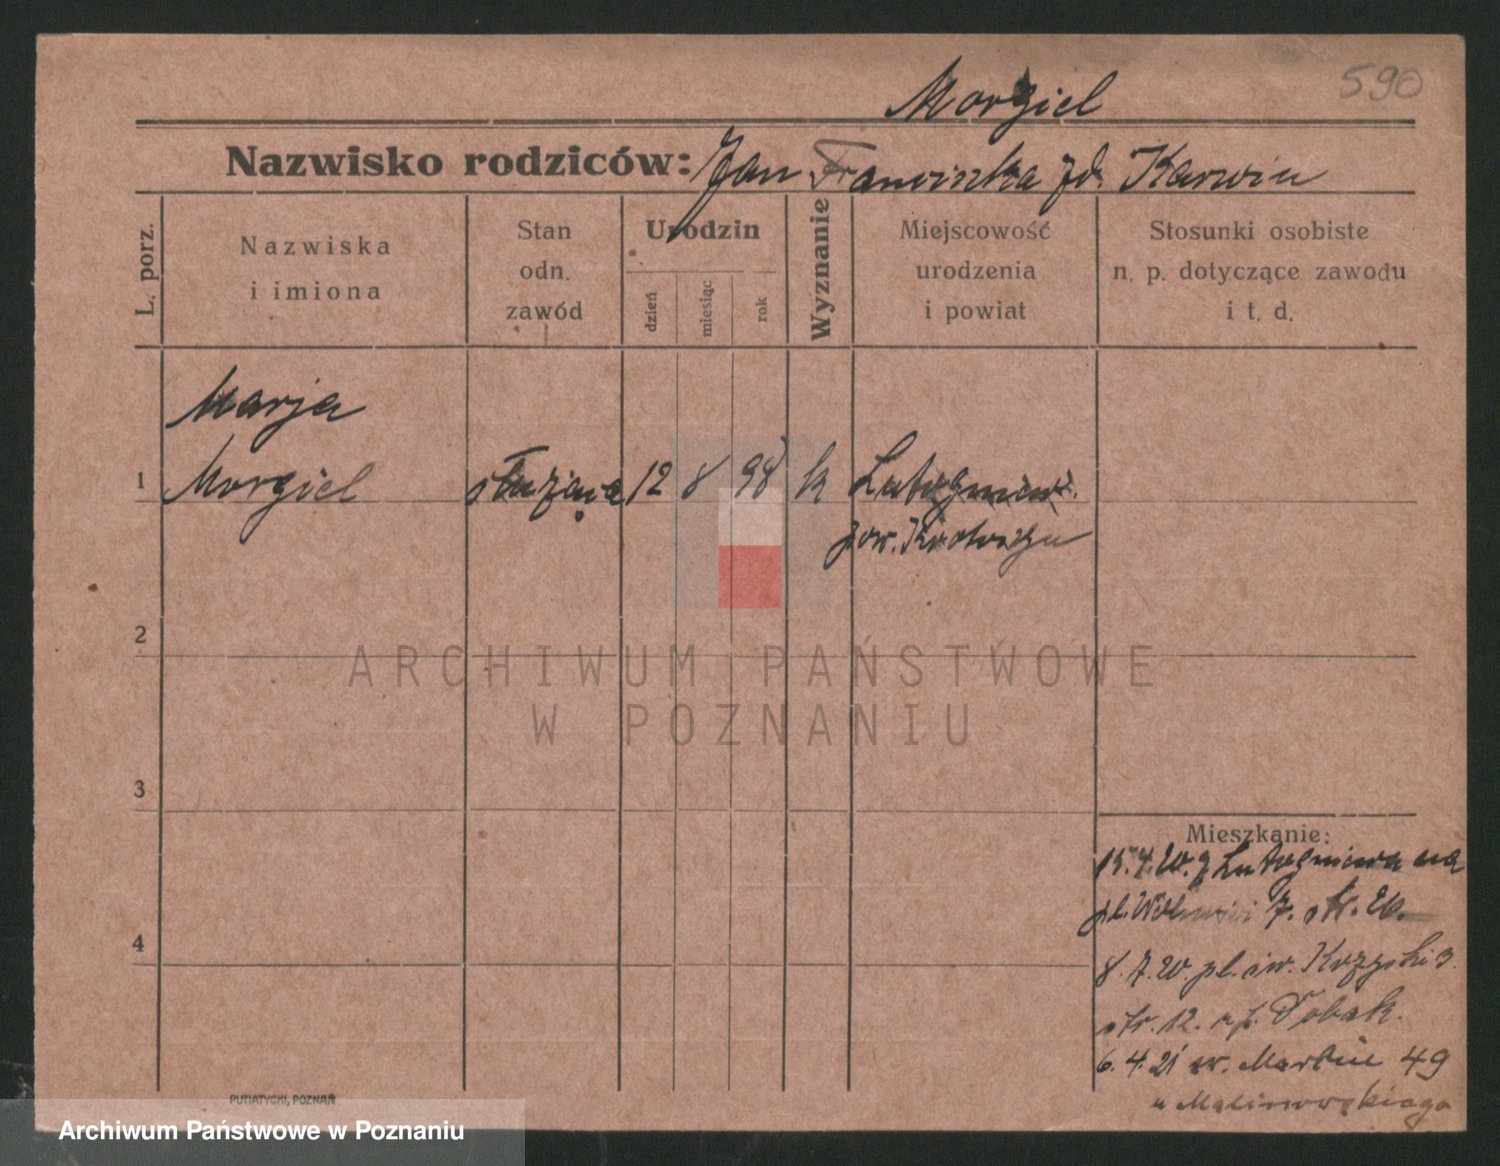 590
Morgiel
Nazwisko rodziców: Jan Franciszka zd. Karwin
L. porz.
Nazwiska
i imiona
Stan
odn.
zawód
Urodzin
dzień
miesiąc
rok
Wyznanie
Miejscowość
urodzenia
i powiat
Stosunki osobiste
n. p. dotyczące zawodu
i t. d.
Marja
1 Morgiel służąca 12 8 98 k Lutogniew
pow. Krotoszyn
2
ARCHIWUM PAŃSTWOWE
W POZNANIU
3
Mieszkanie:
15.4.20. z Lutogniewa na
pl. Wolności 7. str. 26.
4
8.7.20. pl. św. Krzyski 3.
str. 12.
6.4.21 św. Marcin 49
u Malinowskiego
PUTIATYCKI, POZNAŃ
Archiwum Państwowe w Poznaniu